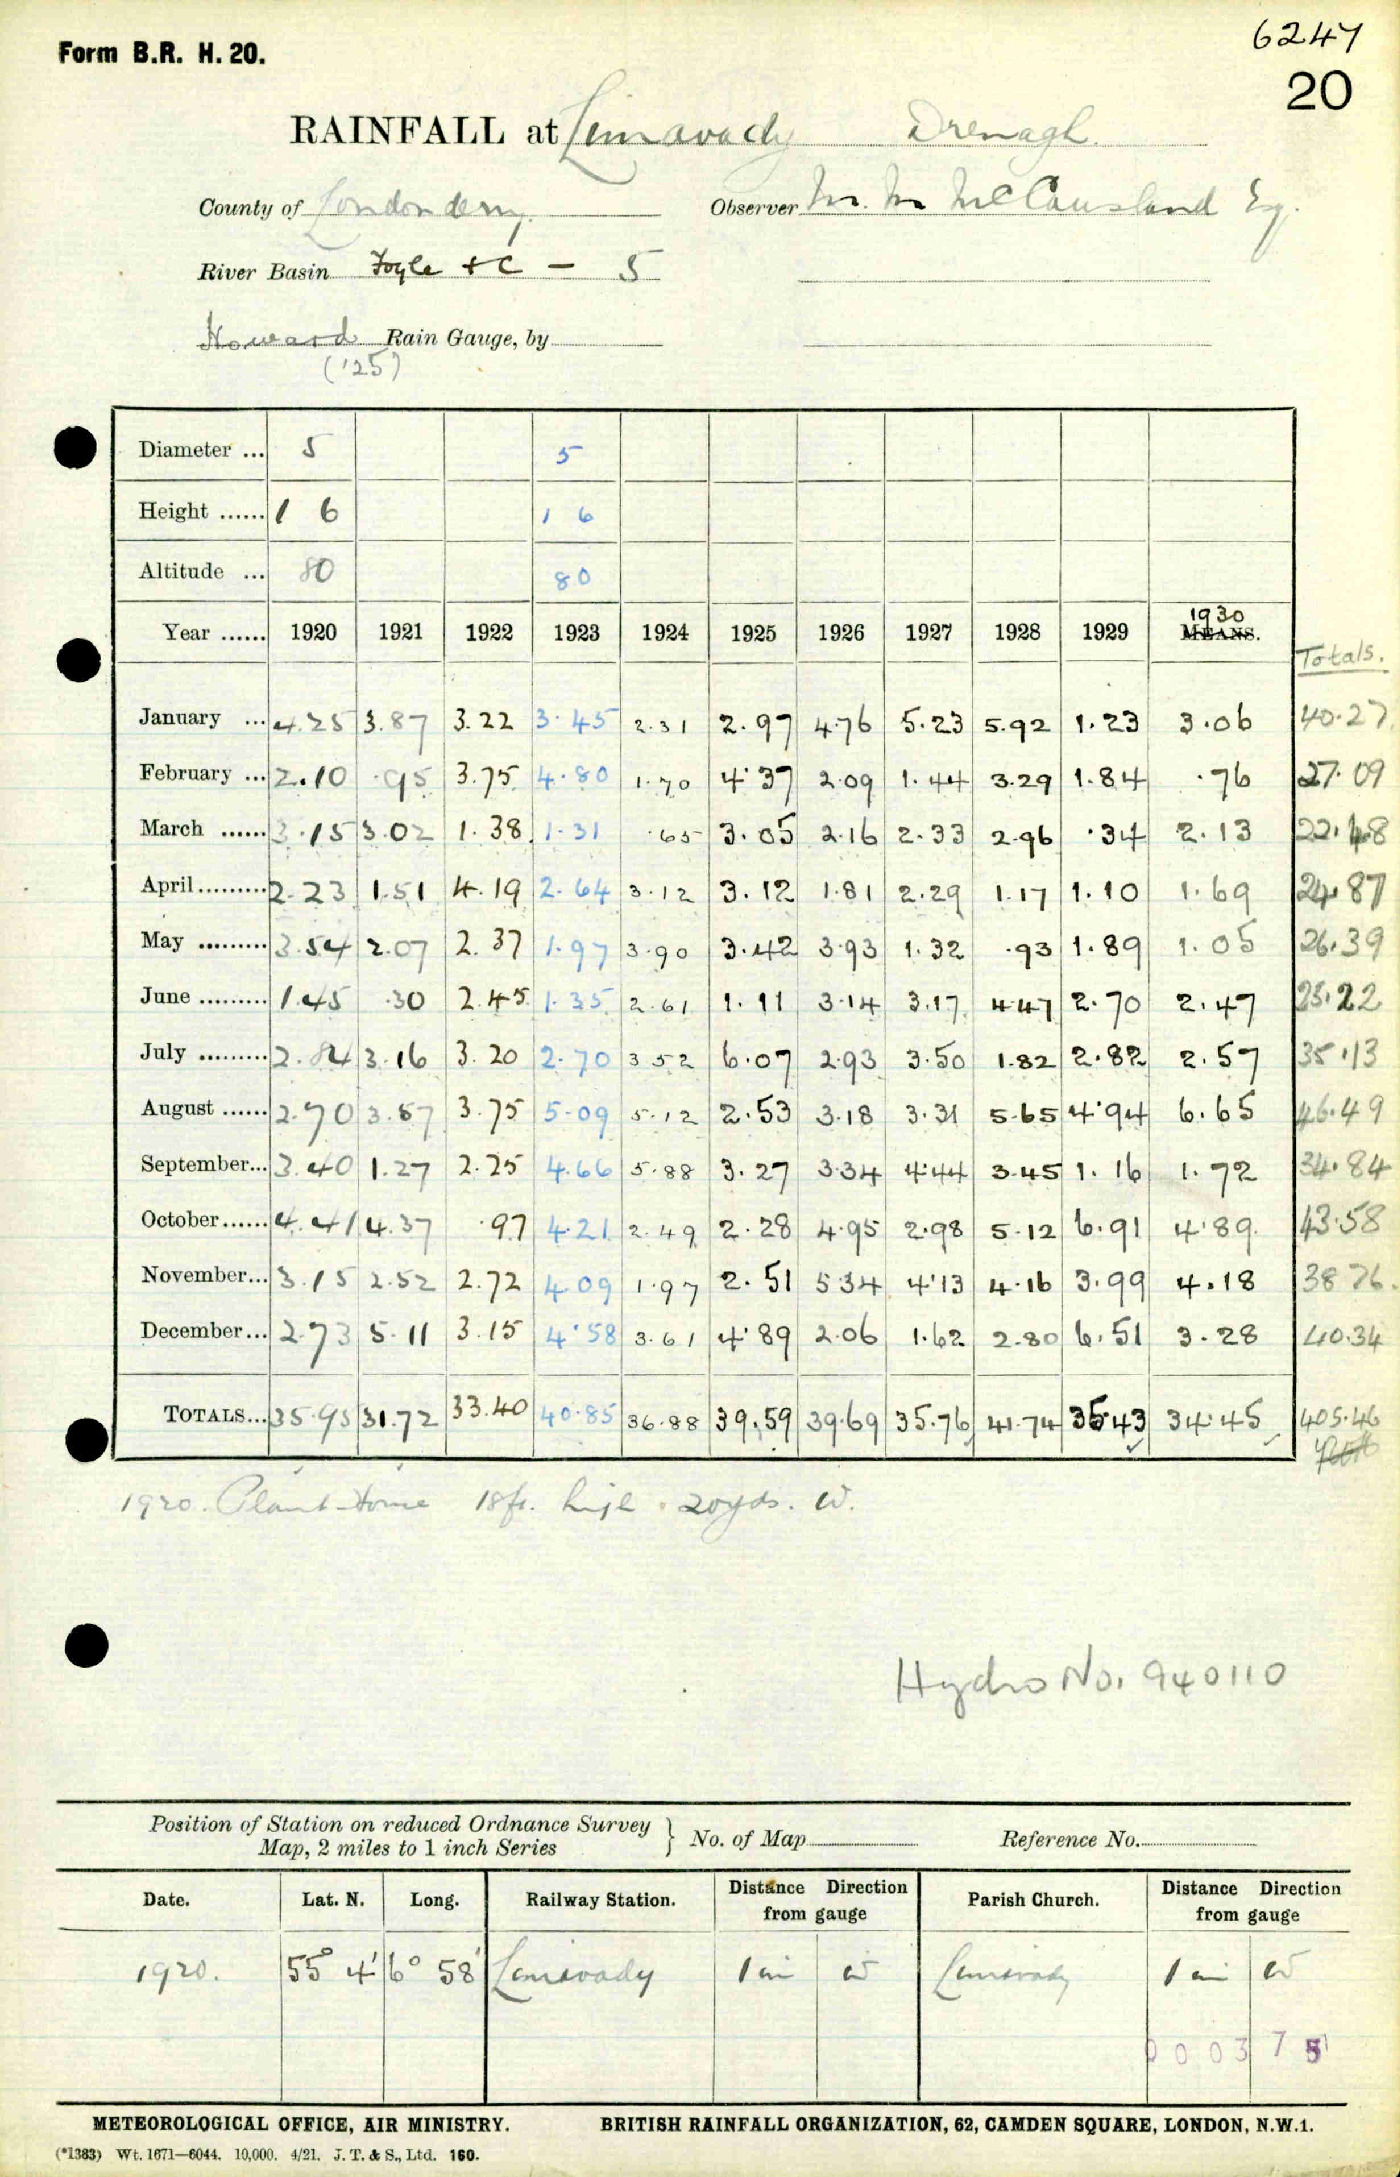 Form B.R. H. 20.
6247
20
RAINFALL at Limavady Drenagh.
County of Londonderry. Observer M. M McCausland Esq.
River Basin Foyle +c — 5
Howard Rain Gauge, by
('25)
Diameter ... 5 5
Height ...... 1 6 1 6
Altitude ... 80 80
Year ...... 1920 1921 1922 1923 1924 1925 1926 1927 1928 1929 1930 MEANS.
Totals.
January ... 4.25 3.87 3.22 3.45 2.31 2.97 4.76 5.23 5.92 1.23 3.06 40.27
February ... 2.10 .95 3.75 4.80 1.70 4.37 2.09 1.44 3.29 1.84 .76 27.09
March ...... 3.15 3.02 1.38 1.31 .65 3.05 2.16 2.33 2.96 .34 2.13 22.48
April ......... 2.23 1.51 4.19 2.64 3.12 3.12 1.81 2.29 1.17 1.10 1.69 24.87
May ......... 3.54 2.07 2.37 1.97 3.90 3.42 3.93 1.32 .93 1.89 1.05 26.39
June ......... 1.45 .30 2.45 1.35 2.61 1.11 3.14 3.17 4.47 2.70 2.47 25.22
July ......... 2.84 3.16 3.20 2.70 3.52 6.07 2.93 3.50 1.82 2.82 2.57 35.13
August ...... 2.70 3.57 3.75 5.09 5.12 2.53 3.18 3.31 5.65 4.94 6.65 46.49
September... 3.40 1.27 2.25 4.66 5.88 3.27 3.34 4.44 3.45 1.16 1.72 34.84
October...... 4.41 4.37 .97 4.21 2.49 2.28 4.95 2.98 5.12 6.91 4.89 43.58
November... 3.15 2.52 2.72 4.09 1.97 2.51 5.34 4.13 4.16 3.99 4.18 38.76
December... 2.73 5.11 3.15 4.58 3.61 4.89 2.06 1.62 2.80 6.51 3.28 40.34
TOTALS... 35.95 31.72 33.40 40.85 36.88 39.59 39.69 35.76 41.74 35.43 34.45 405.46
1920. Plant-House 18ft. high. 20yds. W.
Hydro No. 940110
Position of Station on reduced Ordnance Survey
Map, 2 miles to 1 inch Series } No. of Map Reference No.
Date. Lat. N. Long. Railway Station. Distance Direction from gauge Parish Church. Distance Direction from gauge
1920. 55° 4' 6° 58' Limavady 1 mi W Limavady 1 mi W
0 0 0 3 7 5
METEOROLOGICAL OFFICE, AIR MINISTRY. BRITISH RAINFALL ORGANIZATION, 62, CAMDEN SQUARE, LONDON, N.W.1.
(*1383) Wt. 1671—6044. 10,000. 4/21. J. T. & S., Ltd. 160.